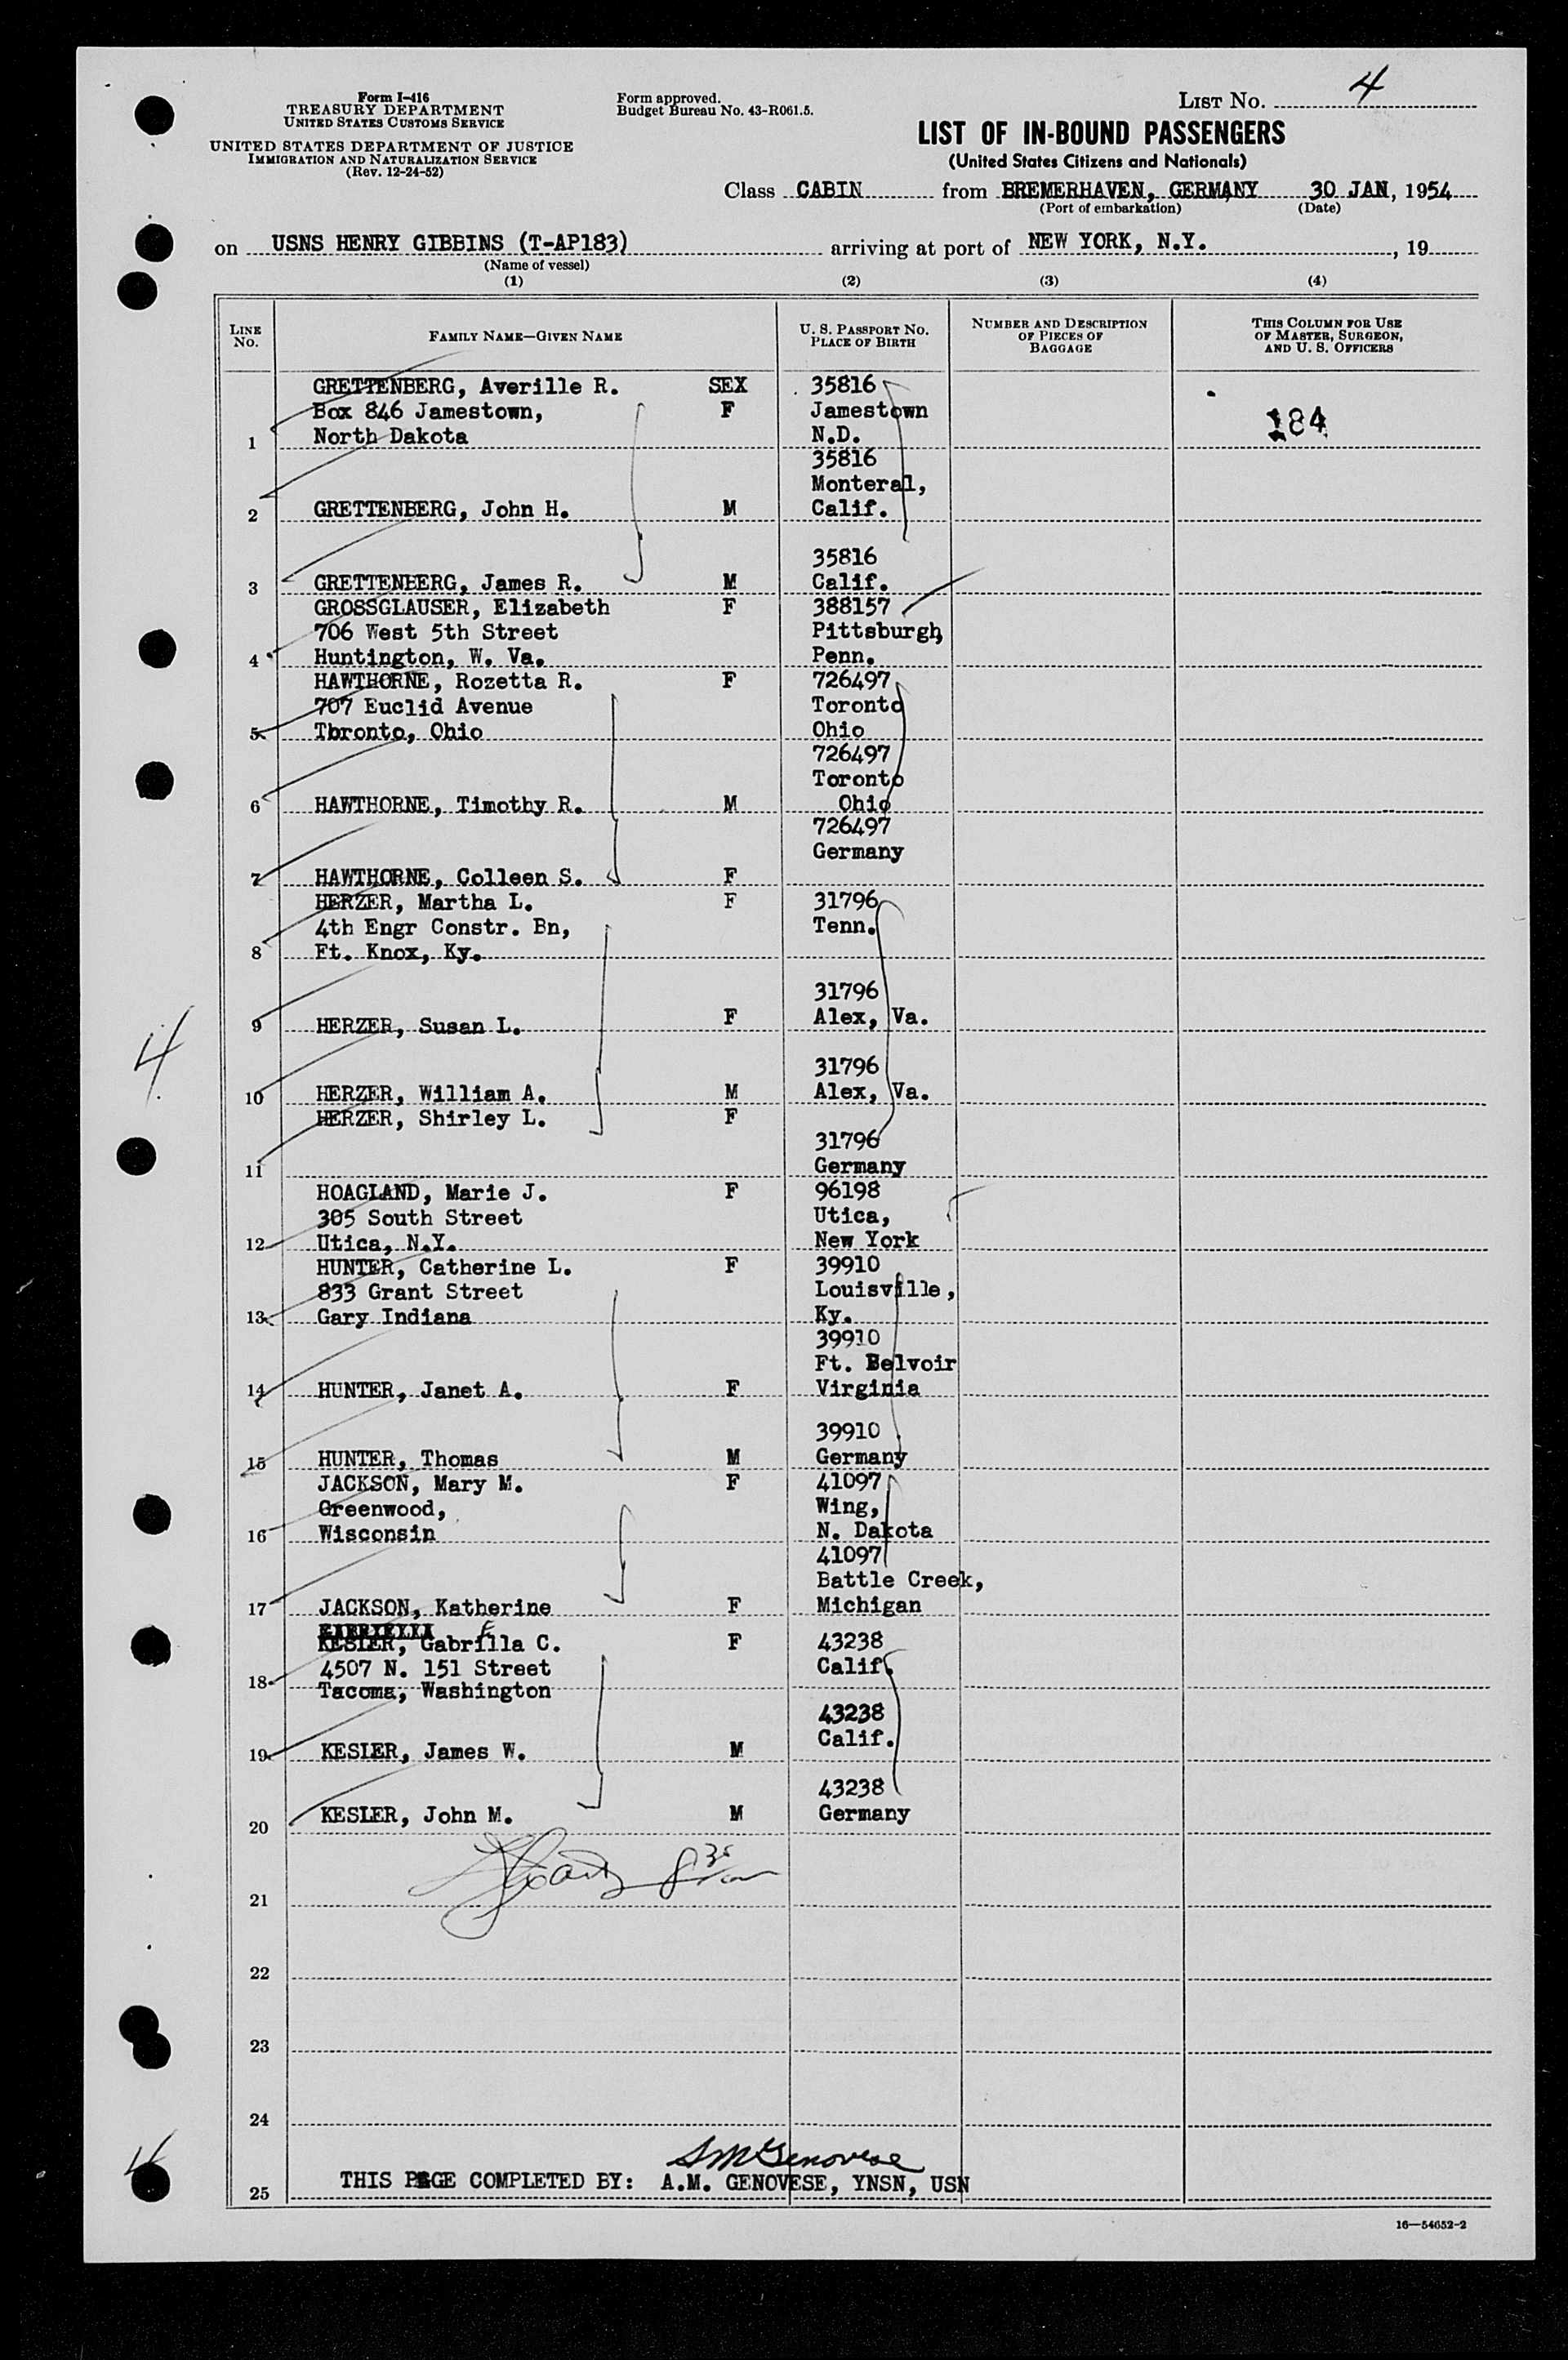 Form I-416
TREASURY DEPARTMENT
UNITED STATES CUSTOMS SERVICE
UNITED STATES DEPARTMENT OF JUSTICE
IMMIGRATION AND NATURALIZATION SERVICE
(Rev. 12-24-52)
Form approved.
Budget Bureau No. 43-R061.5.
LIST NO. 4
LIST OF IN-BOUND PASSENGERS
(United States Citizens and Nationals)
Class CABIN from BREMERHAVEN, GERMANY 30 JAN, 1954
(Port of embarkation) (Date)
on USNS HENRY GIBBINS (T-AP183) arriving at port of NEW YORK, N.Y. , 19
(Name of vessel)
(1) (2) (3) (4)
LINE NO. FAMILY NAME—GIVEN NAME U. S. PASSPORT NO. PLACE OF BIRTH NUMBER AND DESCRIPTION OF PIECES OF BAGGAGE THIS COLUMN FOR USE OF MASTER, SURGEON, AND U. S. OFFICERS
GRETTENBERG, Averille R. SEX 35816
Box 846 Jamestown, F Jamestown 184
1 North Dakota N.D.
35816
Monteral,
2 GRETTENBERG, John H. M Calif.
35816
3 GRETTENBERG, James R. M Calif.
GROSSGLAUSER, Elizabeth F 388157
706 West 5th Street Pittsburgh,
4 Huntington, W. Va. Penn.
HAWTHORNE, Rozetta R. F 726497
707 Euclid Avenue Toronto
5 Toronto, Ohio Ohio
726497
Toronto
6 HAWTHORNE, Timothy R. M Ohio
726497
Germany
7 HAWTHORNE, Colleen S. F
HERZER, Martha L. F 31796
4th Engr Constr. Bn, Tenn.
8 Ft. Knox, Ky.
31796
9 HERZER, Susan L. F Alex, Va.
31796
10 HERZER, William A. M Alex, Va.
HERZER, Shirley L. F
31796
11 Germany
HOAGLAND, Marie J. F 96198
305 South Street Utica,
12 Utica, N.Y. New York
HUNTER, Catherine L. F 39910
833 Grant Street Louisville,
13 Gary Indiana Ky.
39910
Ft. Belvoir
14 HUNTER, Janet A. F Virginia
39910
15 HUNTER, Thomas M Germany
JACKSON, Mary M. F 41097
Greenwood, Wing,
16 Wisconsin N. Dakota
41097
Battle Creek,
17 JACKSON, Katherine F Michigan
KESLER, Gabrilla C. F 43238
4507 N. 151 Street Calif.
18 Tacoma, Washington
43238
19 KESLER, James W. M Calif.
43238
20 KESLER, John M. M Germany
21
22
23
24
4
4
AM Genovese
25 THIS PAGE COMPLETED BY: A.M. GENOVESE, YNSN, USN
16—54652-2